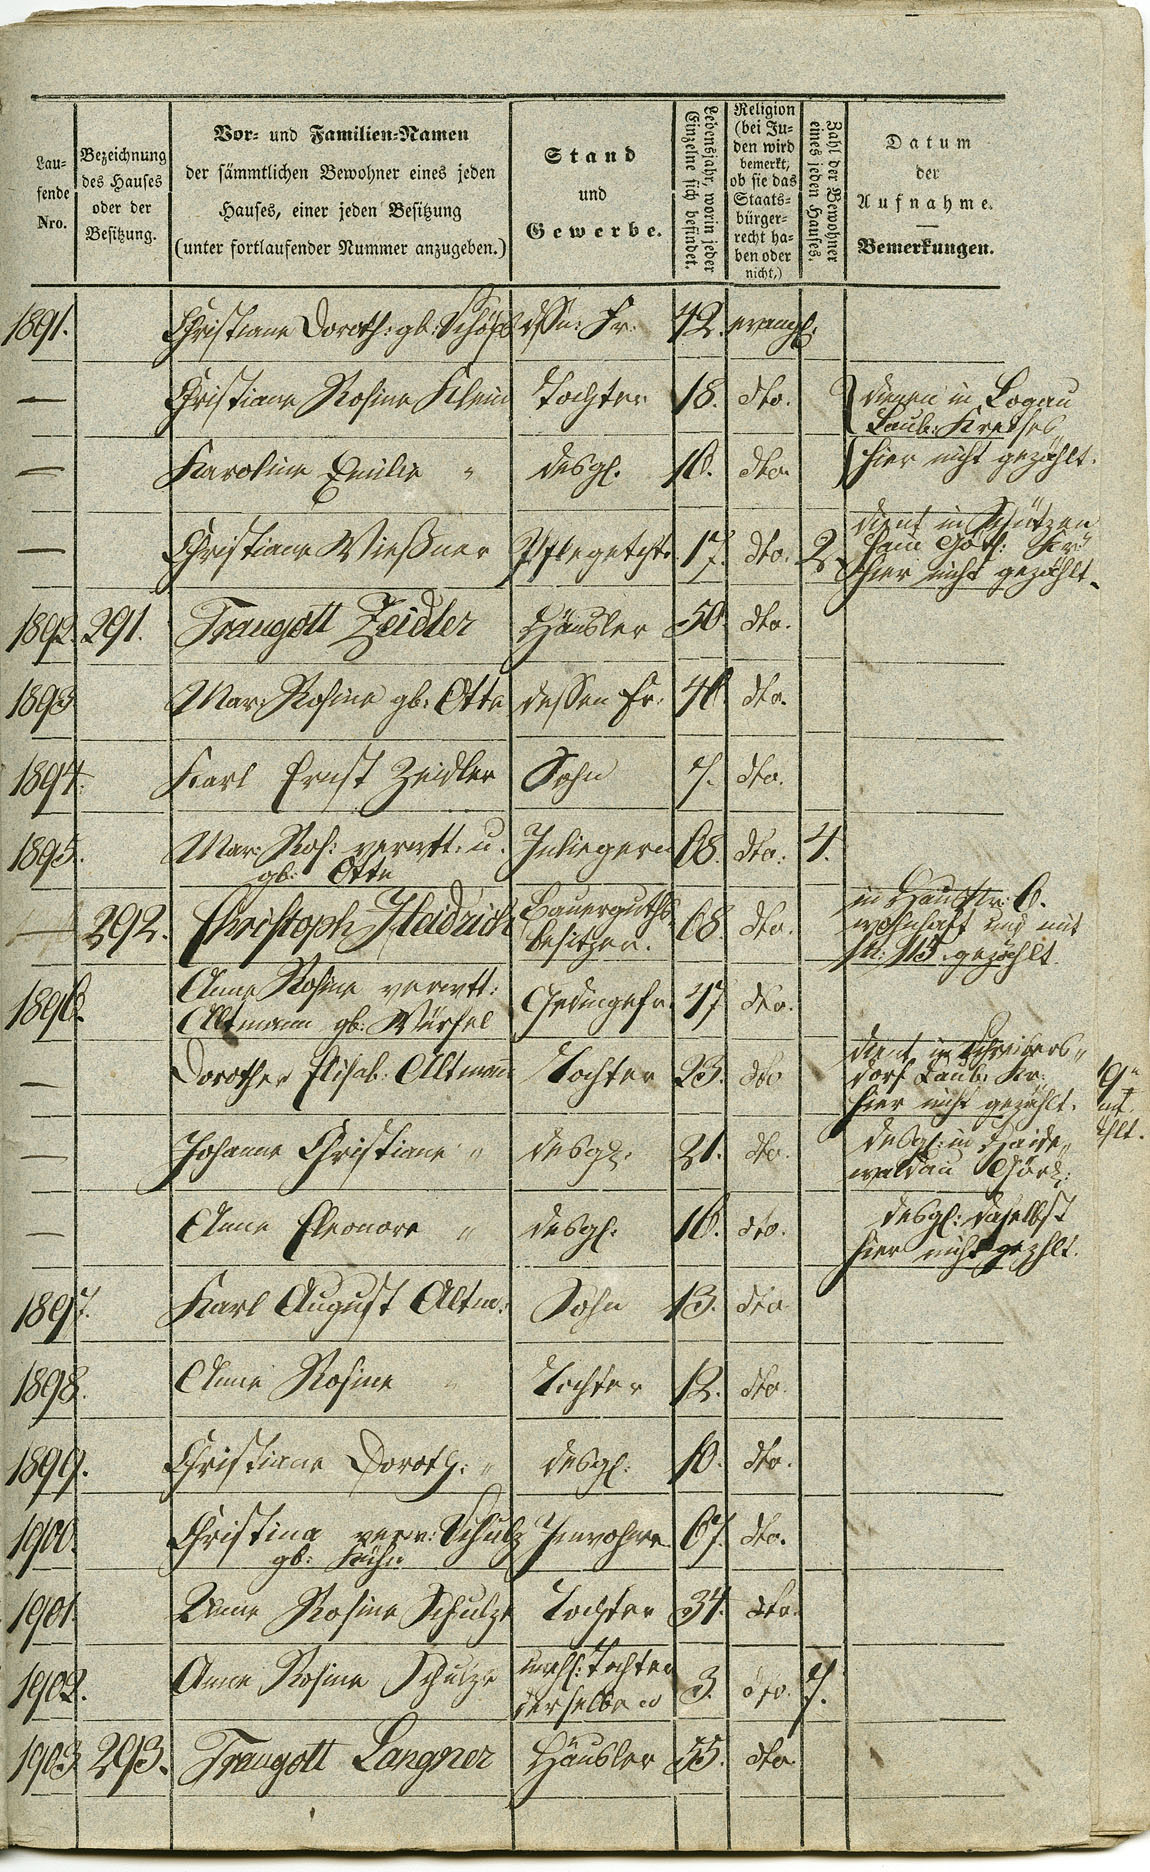 Lau-
fende
Nro.
Bezeichnung
des Hauses
oder der
Besitzung.
Vor- und Familien-Namen
der sämmtlichen Bewohner eines jeden
Hauses, einer jeden Besitzung
(unter fortlaufender Nummer anzugeben.)
Stand
und
Gewerbe.
Lebensjahr, worin jeder
Einzelne sich befindet.
Religion
(bei Ju-
den wird
bemerkt,
ob sie das
Staats-
bürger-
recht ha-
ben oder
nicht,)
Zahl der Bewohner
eines jeden Hauses.
Datum
der
Aufnahme.
Bemerkungen.
1891. Christiane Doroth: gb: dssn: Fr: 42. evangl.
— Christiane Rosine Klein Tochter 18. dto. dienen in Logau
Laub: Kreises
— Karoline Emilie " desgl. 16. dto. hier nicht gezählt.
— Christiane Wießner Pflegetcht. 17. dto. 2. dient in Schützen
hain Görl: Kr:
hier nicht gezählt.
1892. 291. Traugott Zeidler Häusler 50. dto.
1893. Mar: Rosine gb: Otte dessen Fr. 46. dto.
1894. Karl Ernst Zeidler Sohn 7. dto.
1895. Mar: Ros: verwtt: u. Inliegern 68. dto. 4.
gb: Otte
— 292. Christoph Heidrich Bauerguths
besitzer. 68. dto. in Haus Nr: 6.
wohnhaft und mit
N: 115 gezählt.
1896. Anne Rosine verwtt:
Altmann gb: Würfel Gedingefr. 47 dto.
— Dorothee Elisab: Altmann Tochter 23. dto dient in Schreibers-
dorf Laub: Kr:
hier nicht gezählt.
— Johanne Christiane " desgl. 21. dto. desgl: in Haide
waldau Görl:
— Anne Eleonore " desgl: 16. dto. desgl: daselbst
hier nicht gezhlt.
1897. Karl August Altm: Sohn 13. dto
1898. Anne Rosine " Tochter 12. dto.
1899. Christiane Doroth: " desgl: 10. dto.
1900. Christina verw: Schulz Inwohner 67. dto.
gb: Kühn
1901. Anne Rosine Schulze Tochter 34. dto.
1902. Anne Rosine Schulze unehl: Tochter
derselben 3. dto. 7.
1903. 293. Traugott Langner Häusler 55. dto